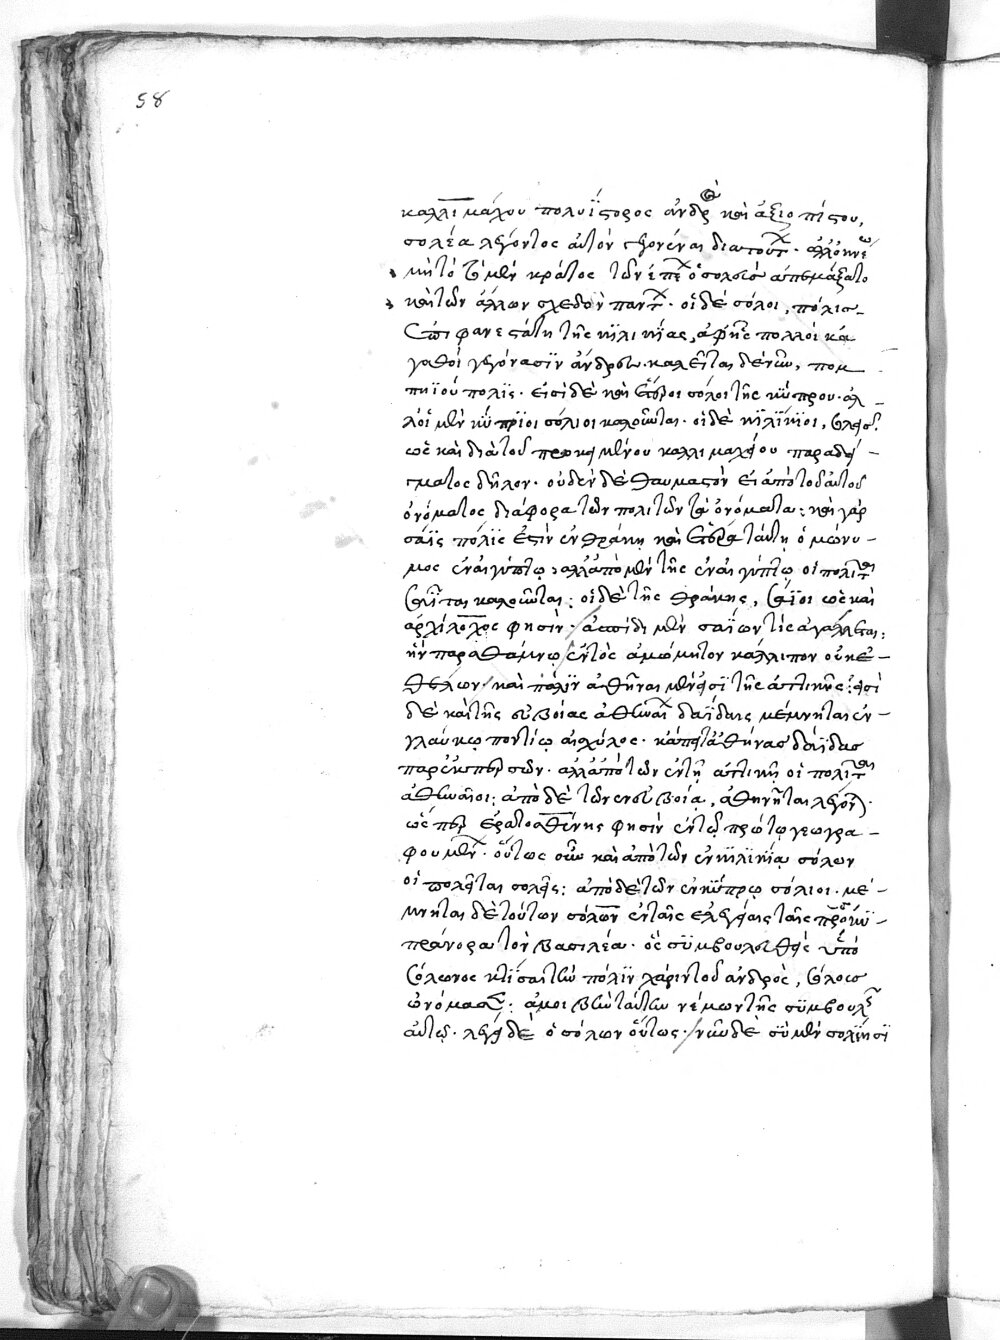 58
καλλιμάχου πολυΐστορος ἀνδρὸς καὶ ἀξιοπίστου,
σολέα λέγοντος αὐτὸν γεγονέναι διὰ τούτων. ἀλλ' ὁ μνε
μὴ τὸ μὲν κράτος τῶν ἐπῶν ὁ σολεὺς ἀπεμάξατο
καὶ τῶν ἄλλων σχεδὸν πάντων. οἱ δὲ σόλοι, πόλις
ἐπιφανεστάτη τῆς κιλικίας, ἀφ' ἧς πολλοὶ κἀ
γαθοὶ γεγόνασϊν ἄνδρες. καλεῖται δὲ νῦν, πομ
πηϊού πολϊς. εἰσὶ δὲ καὶ ἕτεροι σόλοι τῆς κύπρου. ἀλ
λ' οἱ μὲν κύπρϊοι σόλιοι καλοῦνται. οἱ δὲ κϊλΐκϊοι, σολεῖς.
ὡς καὶ διὰ τοῦ προκειμένου καλλιμαχείου παραδεί
γματος δῆλον. οὐδὲν δὲ θαυμαστὸν εἰ ἀπὸ τοῦ αὐτοῦ
ὀνόματος διάφορα τῶν πολιτῶν τὰ ὀνόματα: καὶ γὰρ
σάϊς πόλϊς ἐστὶν ἐν θράκη καὶ ἑτέρα ταύτη ὁμώνυ
μος ἐν αἰγύπτω: ἀλλ' ἀπὸ μὲν τῆς ἐν αἰγύπτω οἱ πολῖται
σαῗται καλοῦνται: οἱ δὲ τῆς θράκης, σάϊοι ὡς καὶ
ἀρχίλοχος φησὶν. ἀσπίδι μὲν σαΐων τὶς ἀγάλλεται:
ἣν παρὰ θάμνω ἐντὸς ἀμώμητον κάλλιπον οὐκ ἐ
θέλων. καὶ πόλϊν ἀθῆναι μὲν εἰσὶ τῆς ἀττικῆς: εἰσὶ
δὲ καὶ τῆς εὐβοίας ἀθῆναι δαΐδαις μέμνηται ἐν
γλαύκω ποντίω αἰσχύλος. κἄπειτ' ἀθήνας δαΐδας
παρεκπερῶν. ἀλλ' ἀπὸ τῶν ἐν τῆ ἀττικῆ οἱ πολῖται
ἀθηναῖοι: ἀπὸ δὲ τῶν ἐν εὐβοία, ἀθηνῆται λέγονται.
ὥσπερ ἐρατοσθένης φησὶν ἐν τῷ πρώτω γεωγρα
φουμένων. οὕτως οὖν καὶ ἀπὸ τῶν ἐν κϊλϊκΐα σόλων
οἱ πολῖται σολεῖς: ἀπὸ δὲ τῶν ἐν κύπρω σόλιοι. μέ
μνηται δὲ τούτων σόλων ἐν ταῖς ἐλεγείαις ταῖς πρὸς κυ
πράνορα τὸν βασιλέα. ὃς σϋμβουλευθεὶς ὑπὸ
σόλωνος κτΐσαι τὴν πόλϊν χάριν τοῦ ἀνδρὸς, σόλους
ὠνόμασεν: ἀμοιβὴν ταύτην νέμων τῆς σϋμβουλῆς
αὐτῷ. λέγει δὲ ὁ σόλων οὕτως. νῦν δὲ σὺ μὲν σολΐησϊ